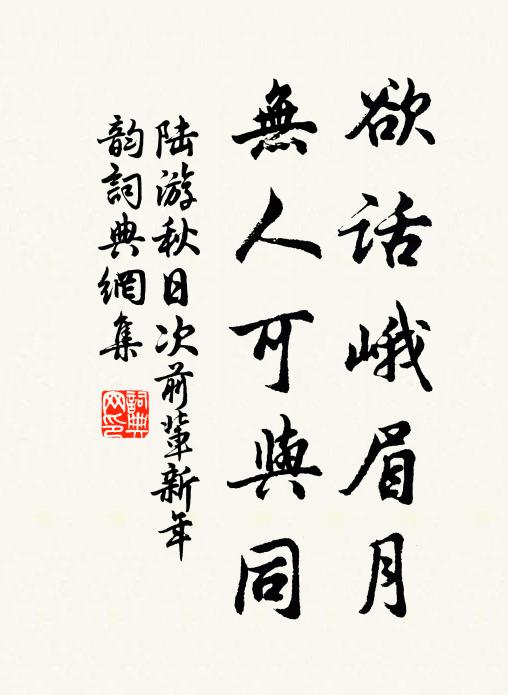 欲话峨眉月
無人可與同
陆游秋日次前輩新年
韵詞典網集
詞典网印